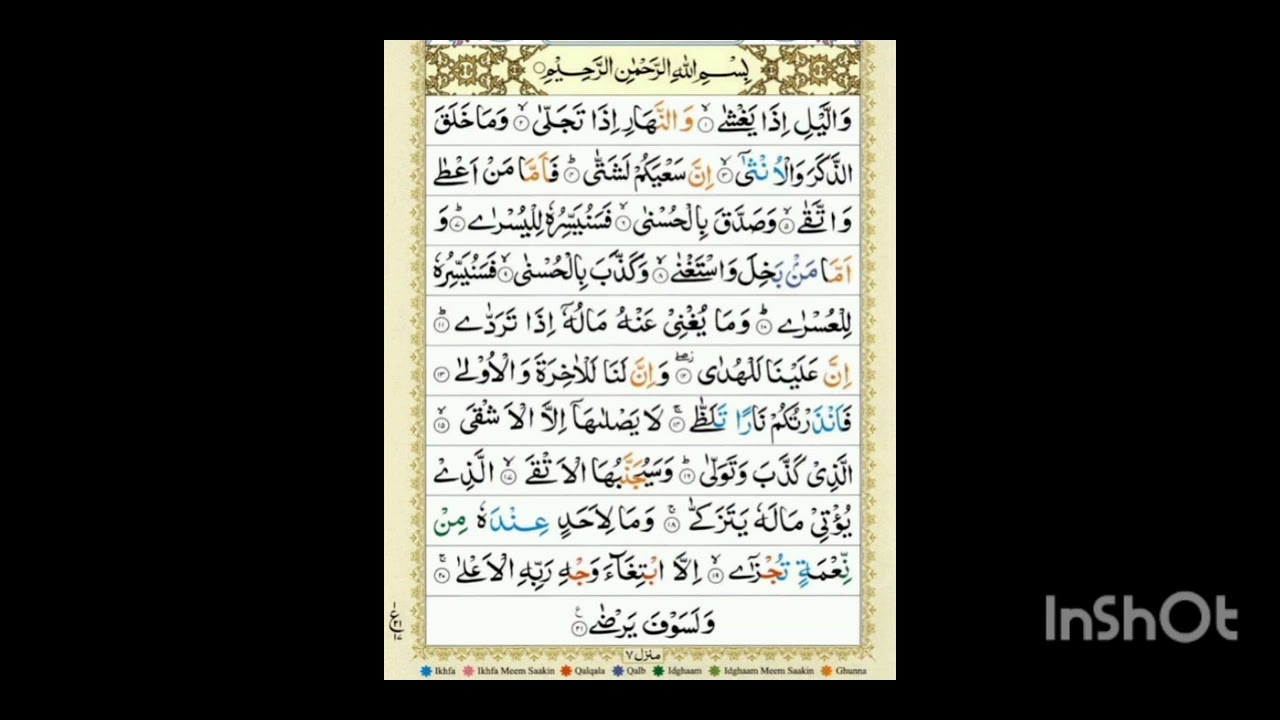 بِسْمِ اللهِ الرَّحْمٰنِ الرَّحِيْمِ
وَالَّيْلِ اِذَا يَغْشٰى ۙ۝۱ وَالنَّهَارِ اِذَا تَجَلّٰى ۙ۝۲ وَمَا خَلَقَ
الذَّكَرَ وَالْاُنْثٰۤى ۙ۝۳ اِنَّ سَعْيَكُمْ لَشَتّٰى ؕ۝۴ فَاَمَّا مَنْ اَعْطٰى
وَاتَّقٰى ۙ۝۵ وَصَدَّقَ بِالْحُسْنٰى ۙ۝۶ فَسَنُيَسِّرُهٗ لِلْيُسْرٰى ؕ۝۷ وَ
اَمَّا مَنْۢ بَخِلَ وَاسْتَغْنٰى ۙ۝۸ وَكَذَّبَ بِالْحُسْنٰى ۙ۝۹ فَسَنُيَسِّرُهٗ
لِلْعُسْرٰى ؕ۝۱۰ وَمَا يُغْنِيْ عَنْهُ مَالُهٗۤ اِذَا تَرَدّٰى ؕ۝۱۱
اِنَّ عَلَيْنَا لَلْهُدٰى ۖ۝۱۲ وَاِنَّ لَنَا لَلْاٰخِرَةَ وَالْاُوْلٰى ۝۱۳
فَاَنْذَرْتُكُمْ نَارًا تَلَظّٰى ۚ۝۱۴ لَا يَصْلٰىهَاۤ اِلَّا الْاَشْقَى ۙ۝۱۵
الَّذِيْ كَذَّبَ وَتَوَلّٰى ؕ۝۱۶ وَسَيُجَنَّبُهَا الْاَتْقَى ۙ۝۱۷ الَّذِيْ
يُؤْتِيْ مَالَهٗ يَتَزَكّٰى ۚ۝۱۸ وَمَا لِاَحَدٍ عِنْدَهٗ مِنْ
نِّعْمَةٍ تُجْزٰۤى ۙ۝۱۹ اِلَّا ابْتِغَآءَ وَجْهِ رَبِّهِ الْاَعْلٰى ۚ۝۲۰
وَلَسَوْفَ يَرْضٰى ۝۲۱
منزل ۷
Ikhfa Ikhfa Meem Saakin Qalqala Qalb Idghaam Idghaam Meem Saakin Ghunna
InShOt